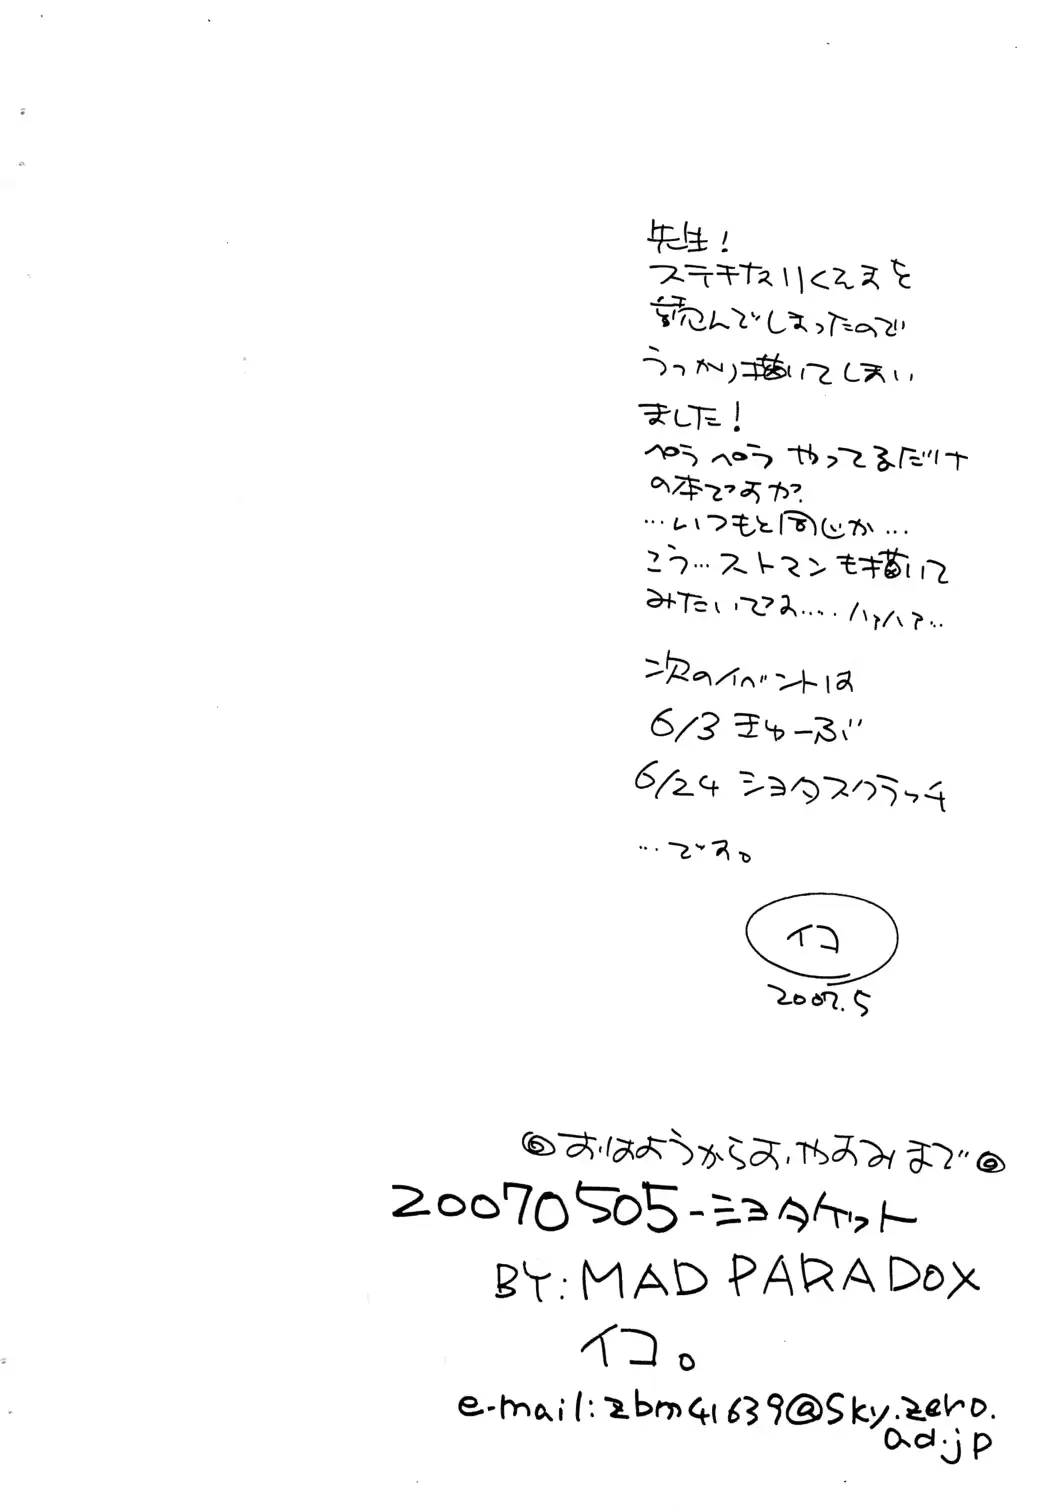 先生!
ステキなリくえすを
読んでしまったので
うっかり描いてしまい
ました!
ペラペラ やってるだけ
の本ですが?
…いつもと同じか…
こう…ストマンも描いて
みたいです…. ハァハァ…
次のイベントは
6/3 きゅーぶ
6/24 ショタスクラッチ
…です。
イコ
2007.5
◎おはようからおやすみまで◎
20070505-ショタケット
BY: MAD PARADOX
イコ。
e-mail: zbm41639@sky.zero.
ad.jp